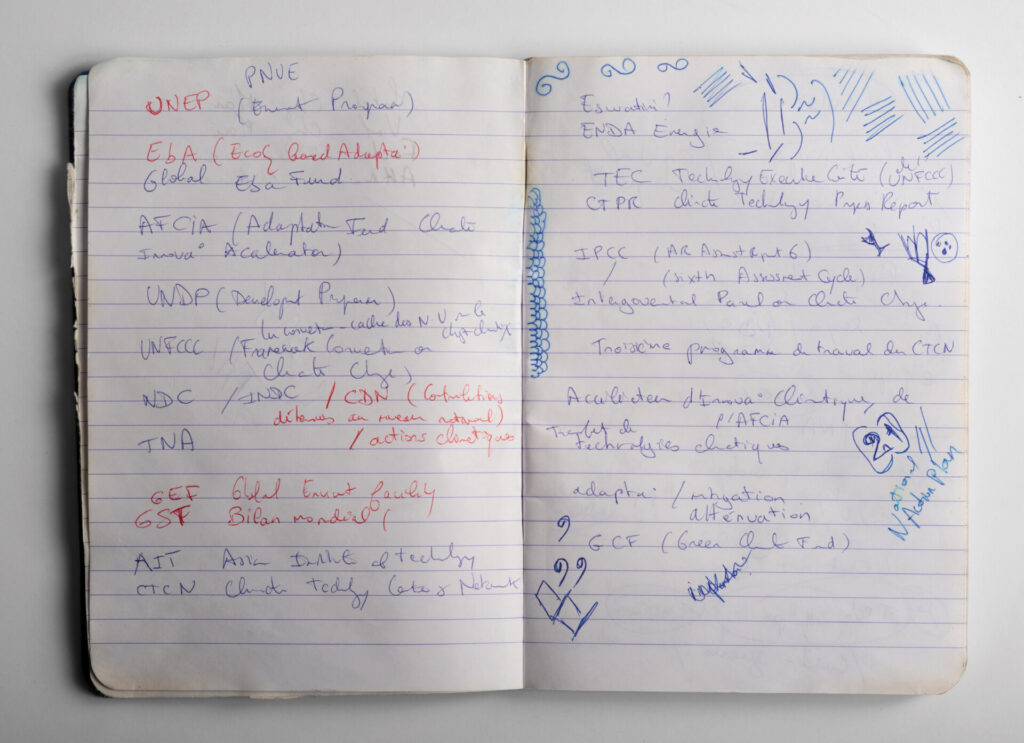 PNUE
UNEP (Envmt Program)
EbA (Ecos based Adaptai°)
Global Eba Fund
AFCIA (Adaptatn Fund Climate
Innova° Accelerator)
UNDP (Developmt Program)
La conventn-cadre des N.U. sur le
UNFCCC / Framework Convention on
Climate Change)
NDC / INDC / CDN (Contributions
déterminées au niveau national)
TNA / actions climatiques
GEF Global Envmt facility
GST Bilan mondial (
AIT Asian Institute of technology
CTCN Climate Technology Center & Network
Eswatini?
ENDA Energie
TEC Technology Executive Cmte (UNFCCC)
CTPR Climate Technology Progress Report
IPCC (AR Assmt Rpt 6)
/ (sixth Assessment Cycle)
Intergovmental Panel on Climate Change
Troisième programme de travail du CTCN
Accélérateur d'Innova° Climatiques, de
l'AFCIA
Transfert de
technologies climatiques
adaptai° / mitigation
atténuation
GCF (Green Climate Fund)
21
National
Action Plan